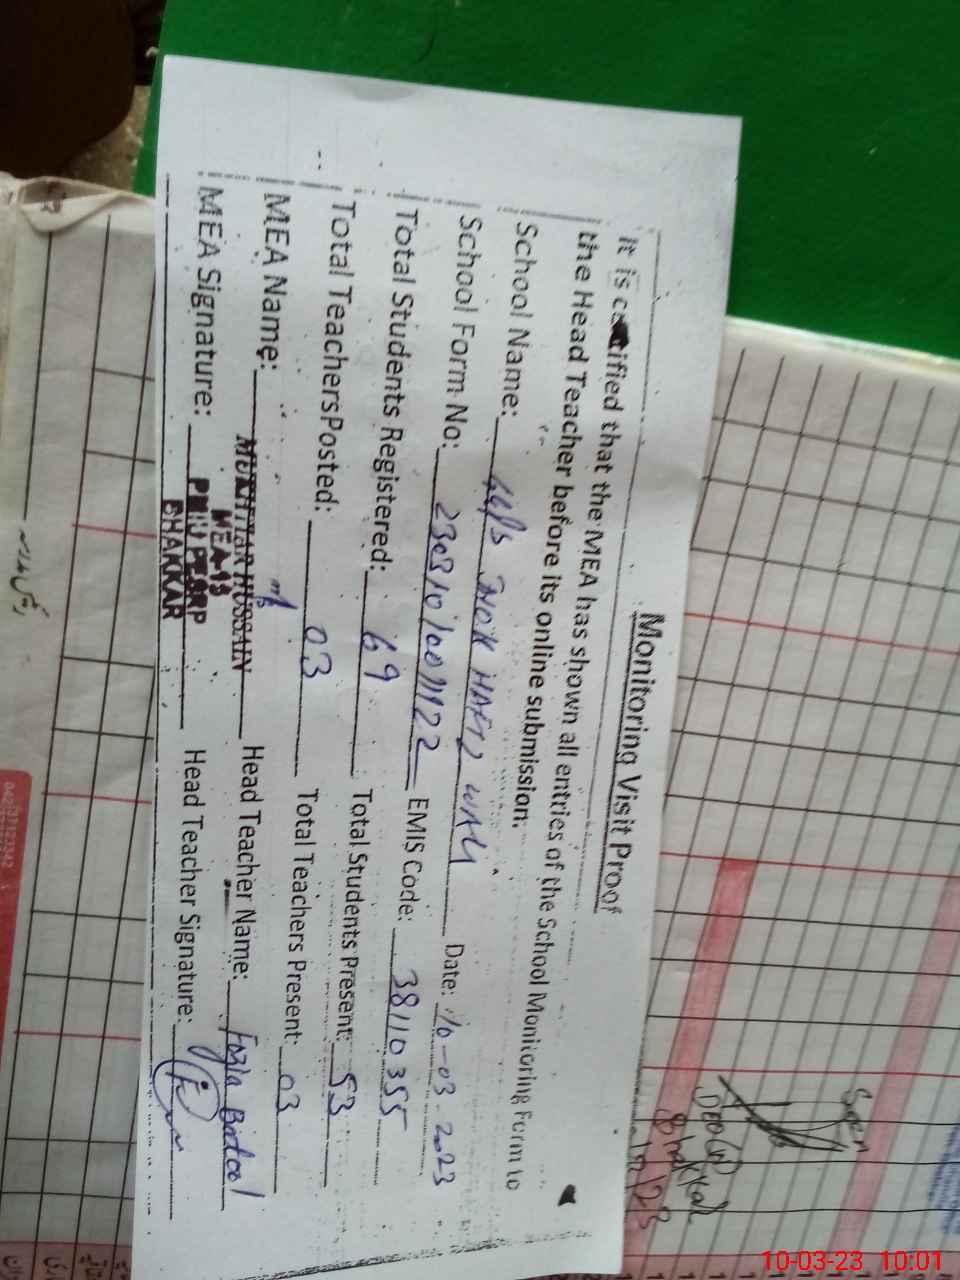 Monitoring Visit Proof
It is certified that the MEA has shown all entries of the School Monitoring Form to
the Head Teacher before its online submission.
School Name: GGPS JHOK HAFIZ WALI Date: 10-03-2023
School Form No: EMIS Code: 38110355
Total Students Registered: 69 Total Students Present: 53
Total Teachers Posted: 03 Total Teachers Present: 03
MEA Name: MUKHTIAR HUSSAIN Head Teacher Name: Fozia Batool
MEA-13
MEA Signature: PMIU PESRP Head Teacher Signature:
BHAKKAR
Seen
DEO(W)
Bhakkar
042-37123342
10-03-23 10:01